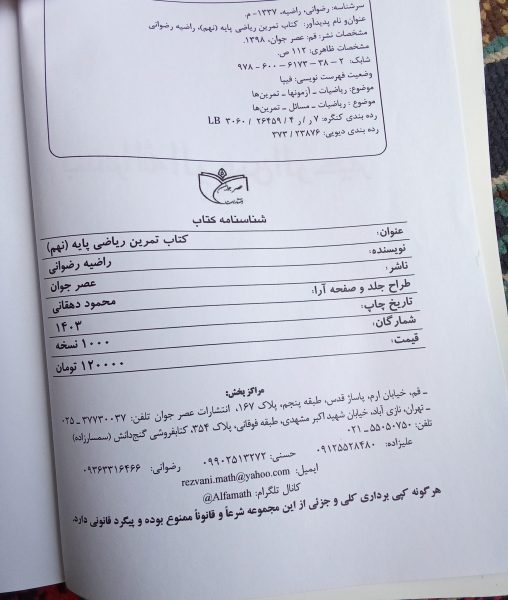 سرشناسه: رضوانی، راضیه، ۱۳۳۷- م.
عنوان‌و نام پدیدآور: کتاب تمرین ریاضی پایه (نهم)، راضیه رضوانی
مشخصات نشر: قم: عصر جوان، ۱۳۹۸.
مشخصات ظاهری: ۱۱۲ ص.
شابک: ۲ – ۳۸ – ۶۱۷۳ – ۶۰۰ - ۹۷۸
وضعیت فهرست نویسی: فیپا
موضوع: ریاضیات ـ آزمونها ـ تمرین‌ها
موضوع : ریاضیات ـ مسائل ـ تمرین‌ها
رده بندی کنگره: ۷ ر/ ر ۴ / ۲۶۴۵۹ / ۳۰۶۰ LB
رده بندی دیویی: ۲۳۸۷۶ / ۳۷۳
عصر جوان
شناسنامه کتاب
عنوان: کتاب تمرین ریاضی پایه (نهم)
نویسنده: راضیه رضوانی
ناشر: عصر جوان
طراح جلد و صفحه آرا: محمود دهقانی
تاریخ چاپ: ۱۴۰۳
شمارگان: ۱۰۰۰ نسخه
قیمت: ۱۲۰۰۰۰ تومان
مراکز پخش:
ـ قم، خیابان ارم، پاساژ قدس، طبقه پنجم، پلاک ۱۶۷، انتشارات عصر جوان تلفن: ۳۷۷۳۰۰۳۷ ـ ۰۲۵
ـ تهران، نازی آباد، خیابان شهید اکبر مشهدی، طبقه فوقانی، پلاک ۳۵۴، کتابفروشی گنج‌دانش (سمسارزاده)
تلفن: ۵۵۰۵۰۷۵۰ ـ ۰۲۱
علیزاده: ۰۹۱۲۵۵۲۸۴۸۰ حسنی: ۰۹۹۰۲۵۱۳۲۷۲ رضوانی: ۰۹۳۶۳۳۱۶۴۶۶
ایمیل: rezvani.math@yahoo.com
کانال تلگرام: @Alfamath
هر گونه کپی برداری کلی و جزئی از این مجموعه شرعاً و قانوناً ممنوع بوده و پیگرد قانونی دارد.